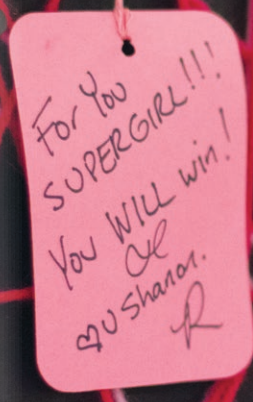 For You
SUPERGIRL!!!
You WILL win!
♡U Sharon.
R